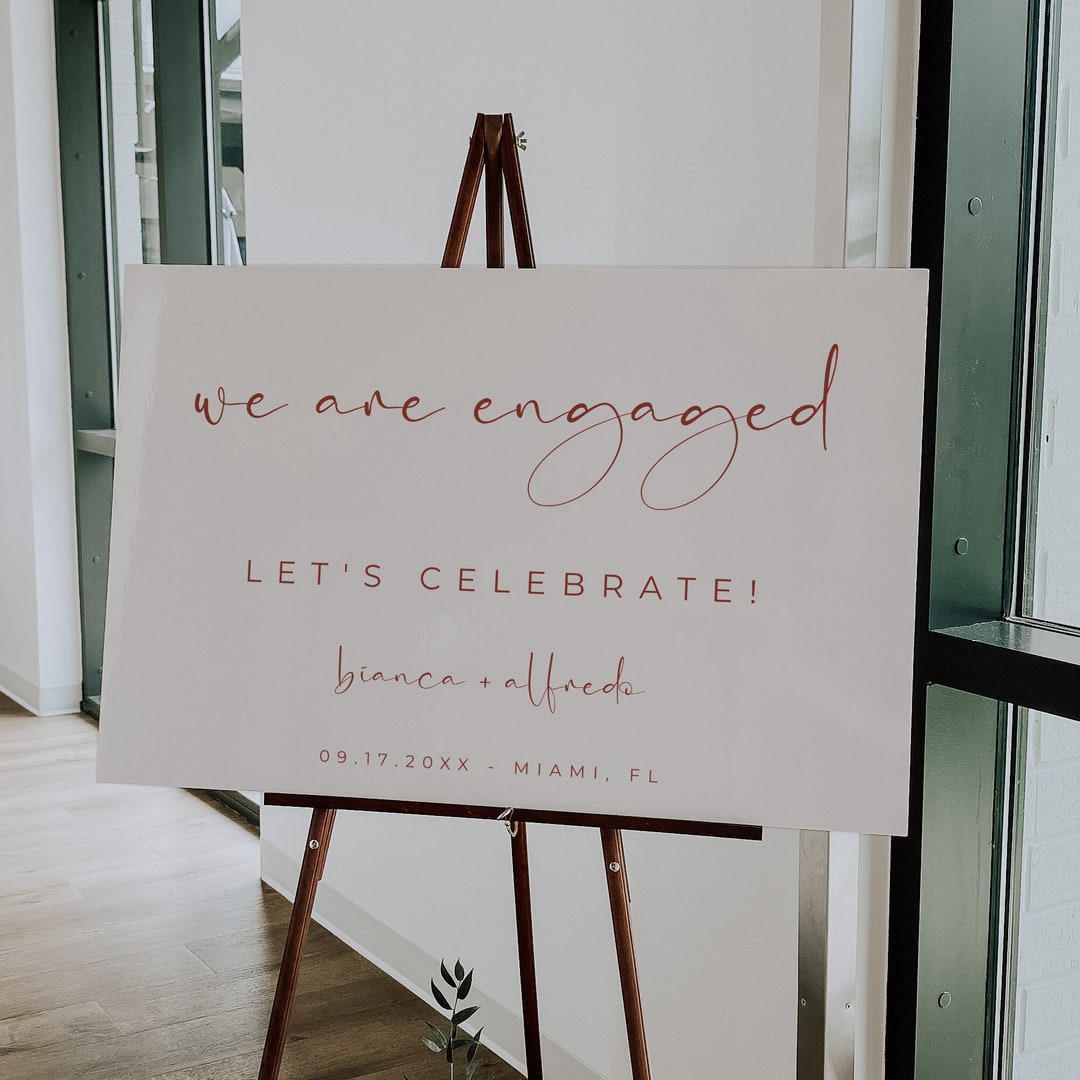 we are engaged
LET'S CELEBRATE!
bianca + alfredo
09.17.20XX - MIAMI, FL